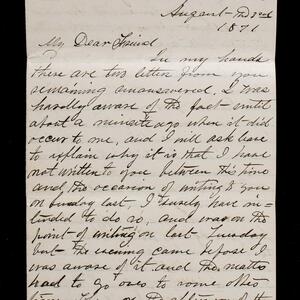 August 22nd
1871
My Dear Friend
In my hands
there are two letters from you
remaining unanswered, I was
hardly aware of the fact until
about a minute ago when it did
occur to me, and I will ask leave
to explain why it is that I have
not written to you between this time
and the occasion of writing to you
on Sunday last, I surely have in-
tended to do so, and was on the
point of writing on last Tuesday
but the evening came before I
was aware of it and the matter
had to go over to some other
time